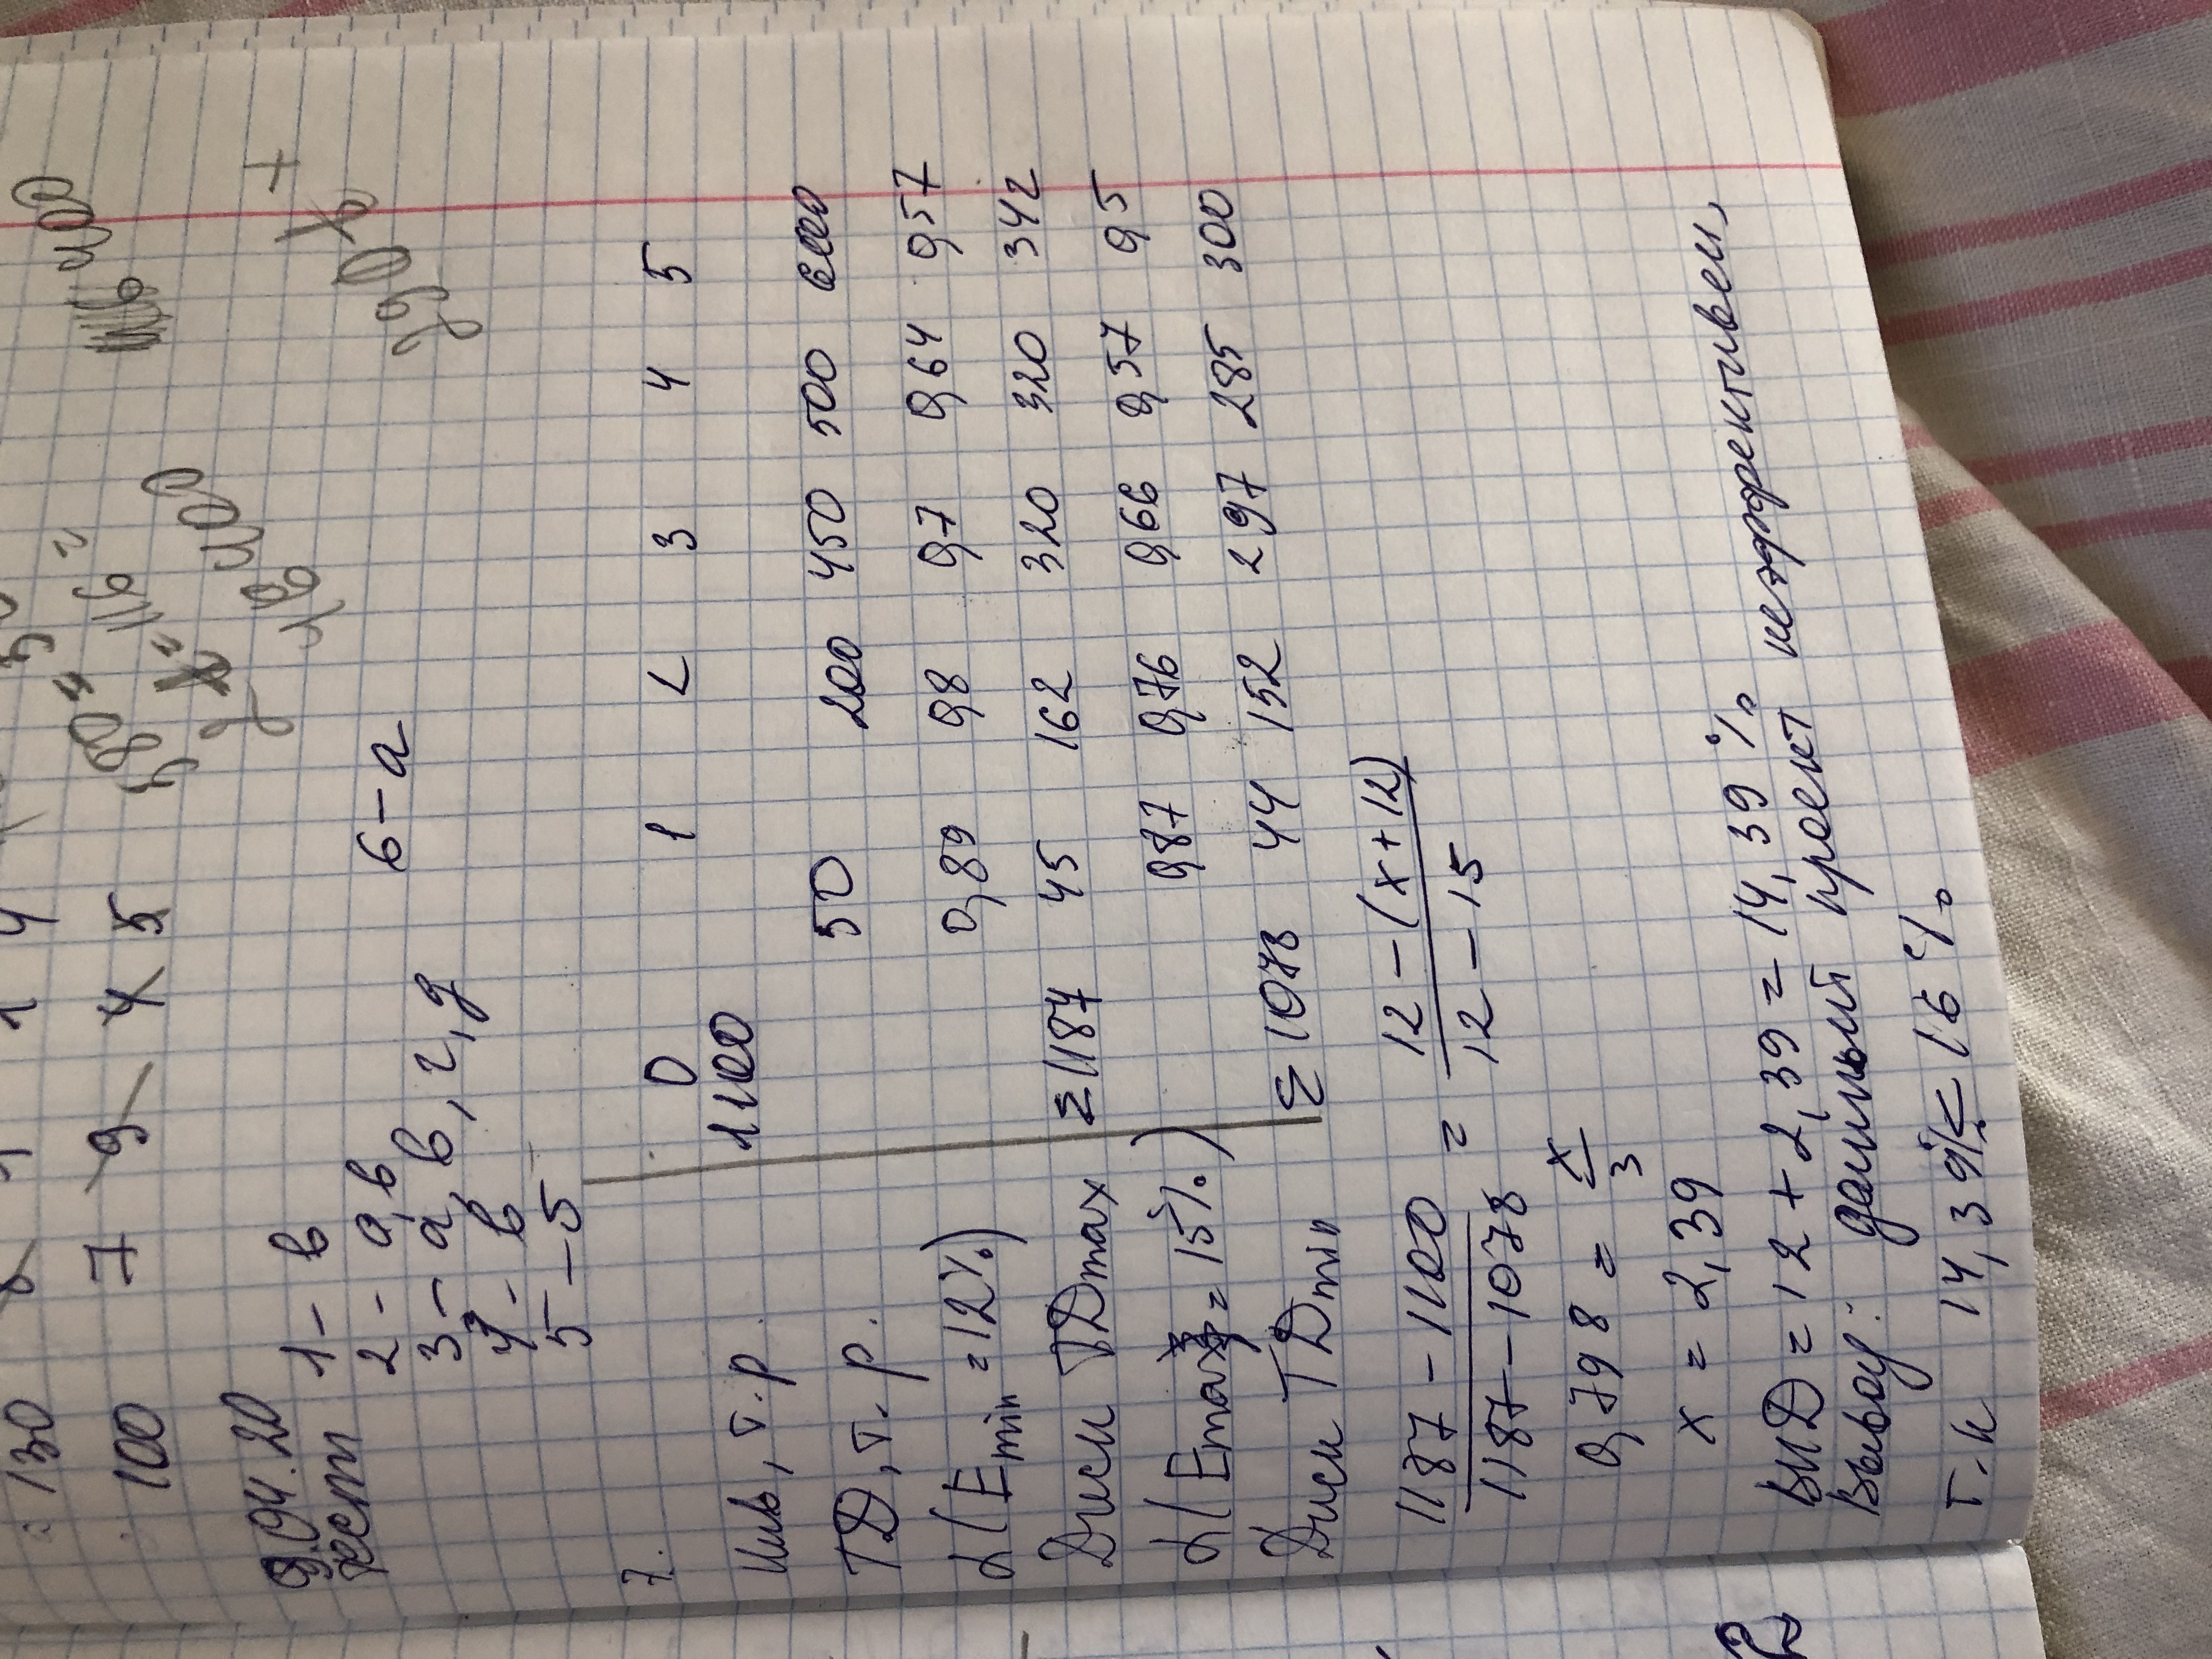 130 8 1 1 4
100 7 9 4 5
580 =
2t = 116 =
46 400
400
390t +
9.04.20
тести 1 - в
2 - а,в
6 - а
3 - а, в, г, д
4 - в
5 - б
7.
0 1 2 3 4 5
Инв, т.р. 1100
ТД, т.р. 50 200 450 500 600
α(Emin = 12%) 0,89 0,8 0,7 0,64 0,57
Диск ТДmax Σ1187 45 162 320 320 342
α(Emax = 15%) 0,87 0,76 0,66 0,57 0,5
Диск ТДmin Σ1078 44 152 297 285 300
1187 - 1100 / 1187 - 1078 = 12 - (x + 12) / 12 - 15
0,798 = x / 3
x = 2,39
ВНД = 12 + 2,39 = 14,39 %
Вывод: данный проект неэффективен,
т.к 14,39% < 16%
2